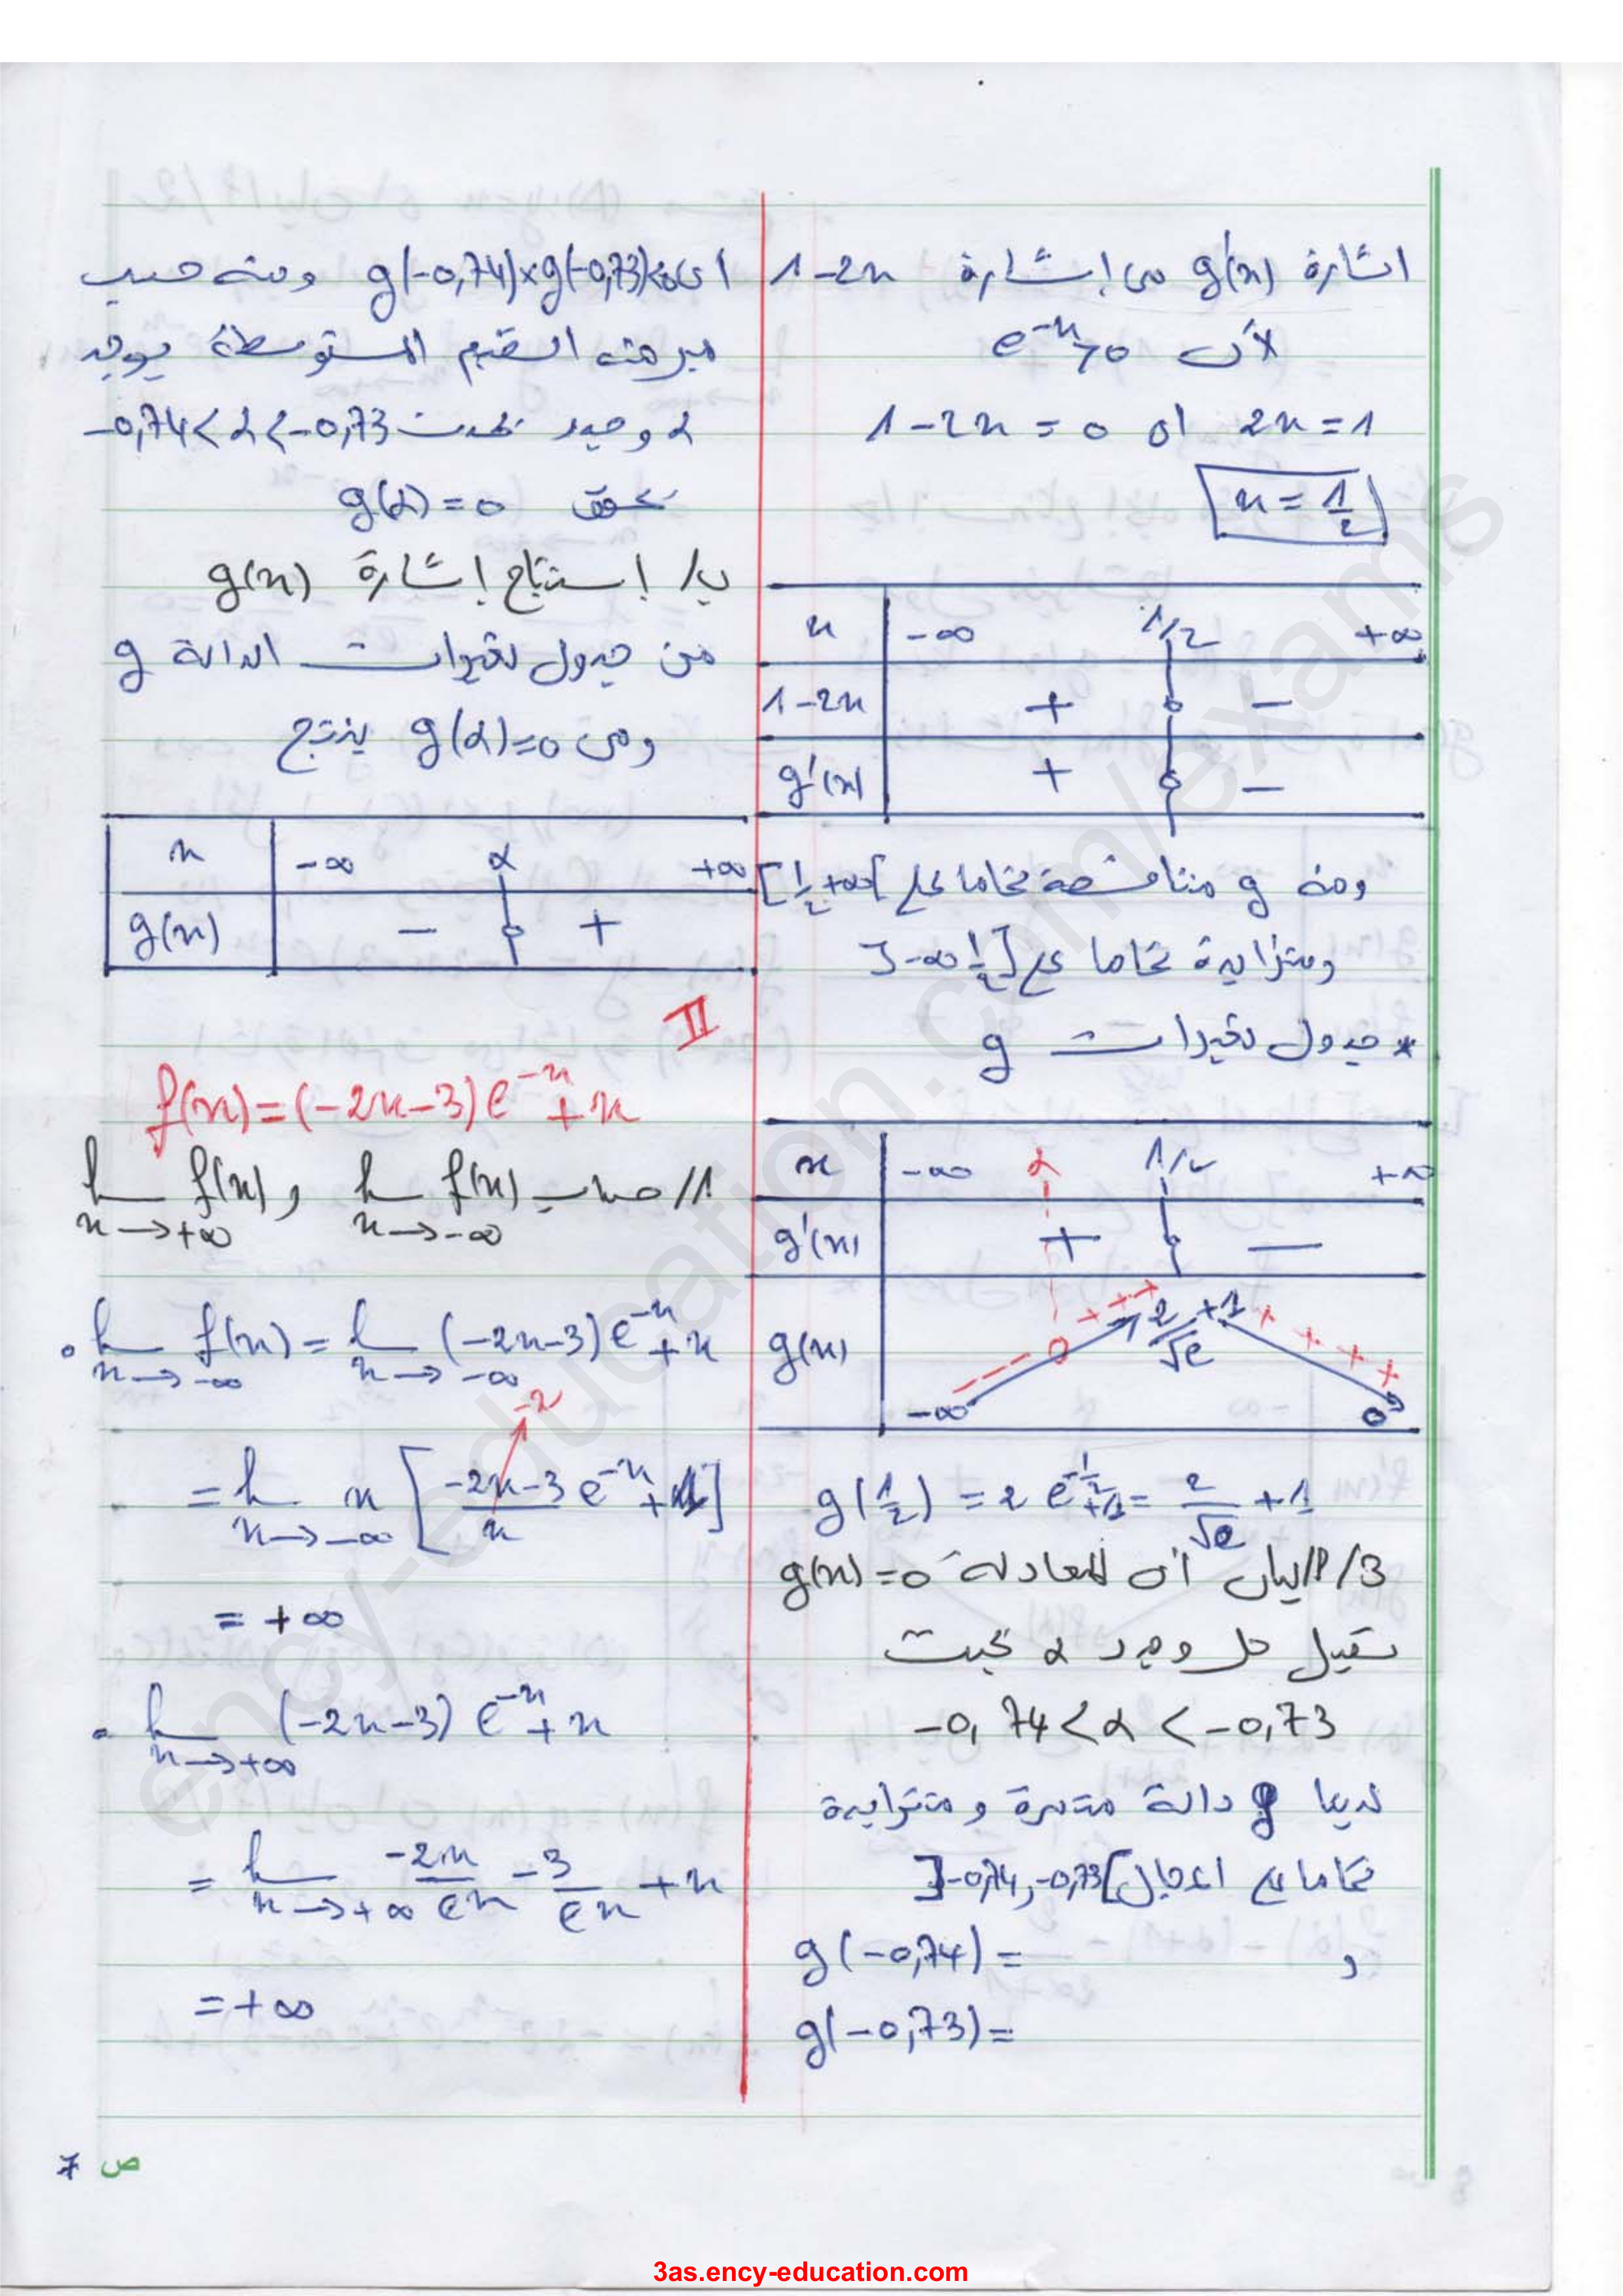 اشارة g'(x) من إشارة 1-2x
لأن e^{-x}>0
1-2x=0 أي 2x=1
x=1/2
x -∞ 1/2 +∞
1-2x + 0 -
g'(x) + 0 -
ومنه g متناقصة تماما على ]1/2,+∞[
ومتزايدة تماما على ]-∞,1/2[
* جدول تغيرات g
x -∞ α 1/2 +∞
g'(x) + 0 -
g(x) -∞ - - - - 0 + + + + + 2/√e +1 + + + + + 0
g(1/2) = 2e^{-1/2}+1 = 2/√e +1
3/أ/ بيان أن المعادلة g(x)=0
تقبل حل وحيد α بحيث
-0,74<α<-0,73
لدينا g دالة مستمرة و متزايدة
تماما على المجال ]-0,74,-0,73[
و g(-0,74)=
g(-0,73)=
أي g(-0,74)×g(-0,73)<0 ومنه حسب
مبرهنة القيم المتوسطة يوجد
α وحيد بحيث -0,74<α<-0,73
يحقق g(α)=0
ب/ إستنتاج إشارة g(x)
من جدول تغيرات الدالة g
ومن g(α)=0 ينتج
x -∞ α +∞
g(x) - 0 +
II
f(x)=(-2x-3)e^{-x}+x
1/ حساب lim x→-∞ f(x) و lim x→+∞ f(x)
• lim x→-∞ f(x) = lim x→-∞ (-2x-3)e^{-x}+x
-2
= lim x→-∞ x[(-2x-3)/x e^{-x}+1]
= +∞
• lim x→+∞ (-2x-3)e^{-x}+x
= lim x→+∞ -2x/e^x - 3/e^x + x
= +∞
ص 7
ency-education.com/exams
3as.ency-education.com